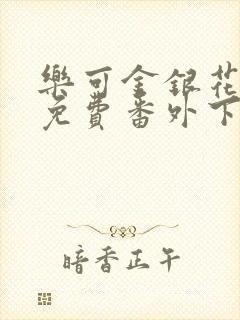 樂可金銀花
免費番外下
暗香正午